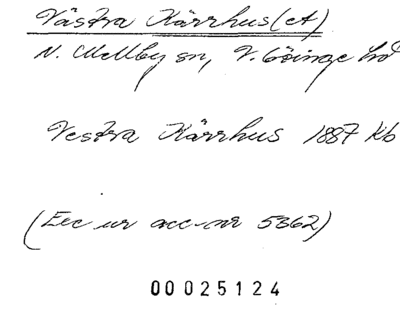 Västra Kärrhus(et)
N. Mellby sn, V. Göinge hd
Vestra Kärrhus 1887 Kb
(Exc ur acc-nr 5362)
00025124